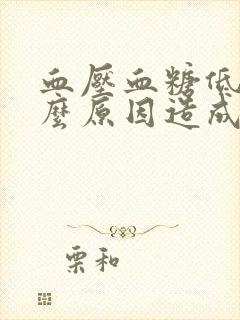 血壓血糖低
麼原因造成
栗和